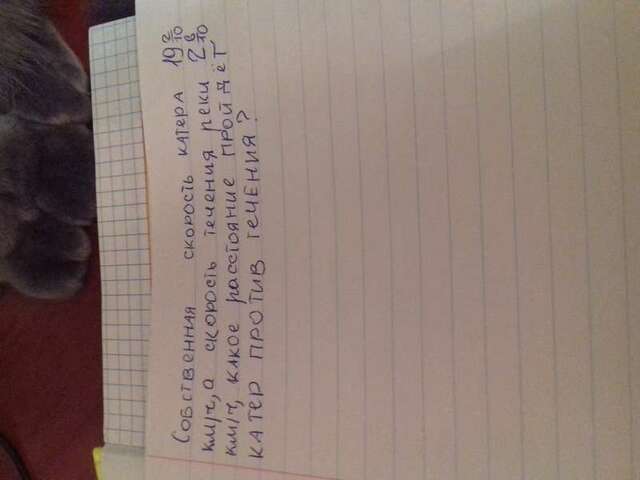 Собственная скорость катера 19 2/10
км/ч, а скорость течения реки 2 6/10
км/ч, какое расстояние пройдёт
катер против течения?